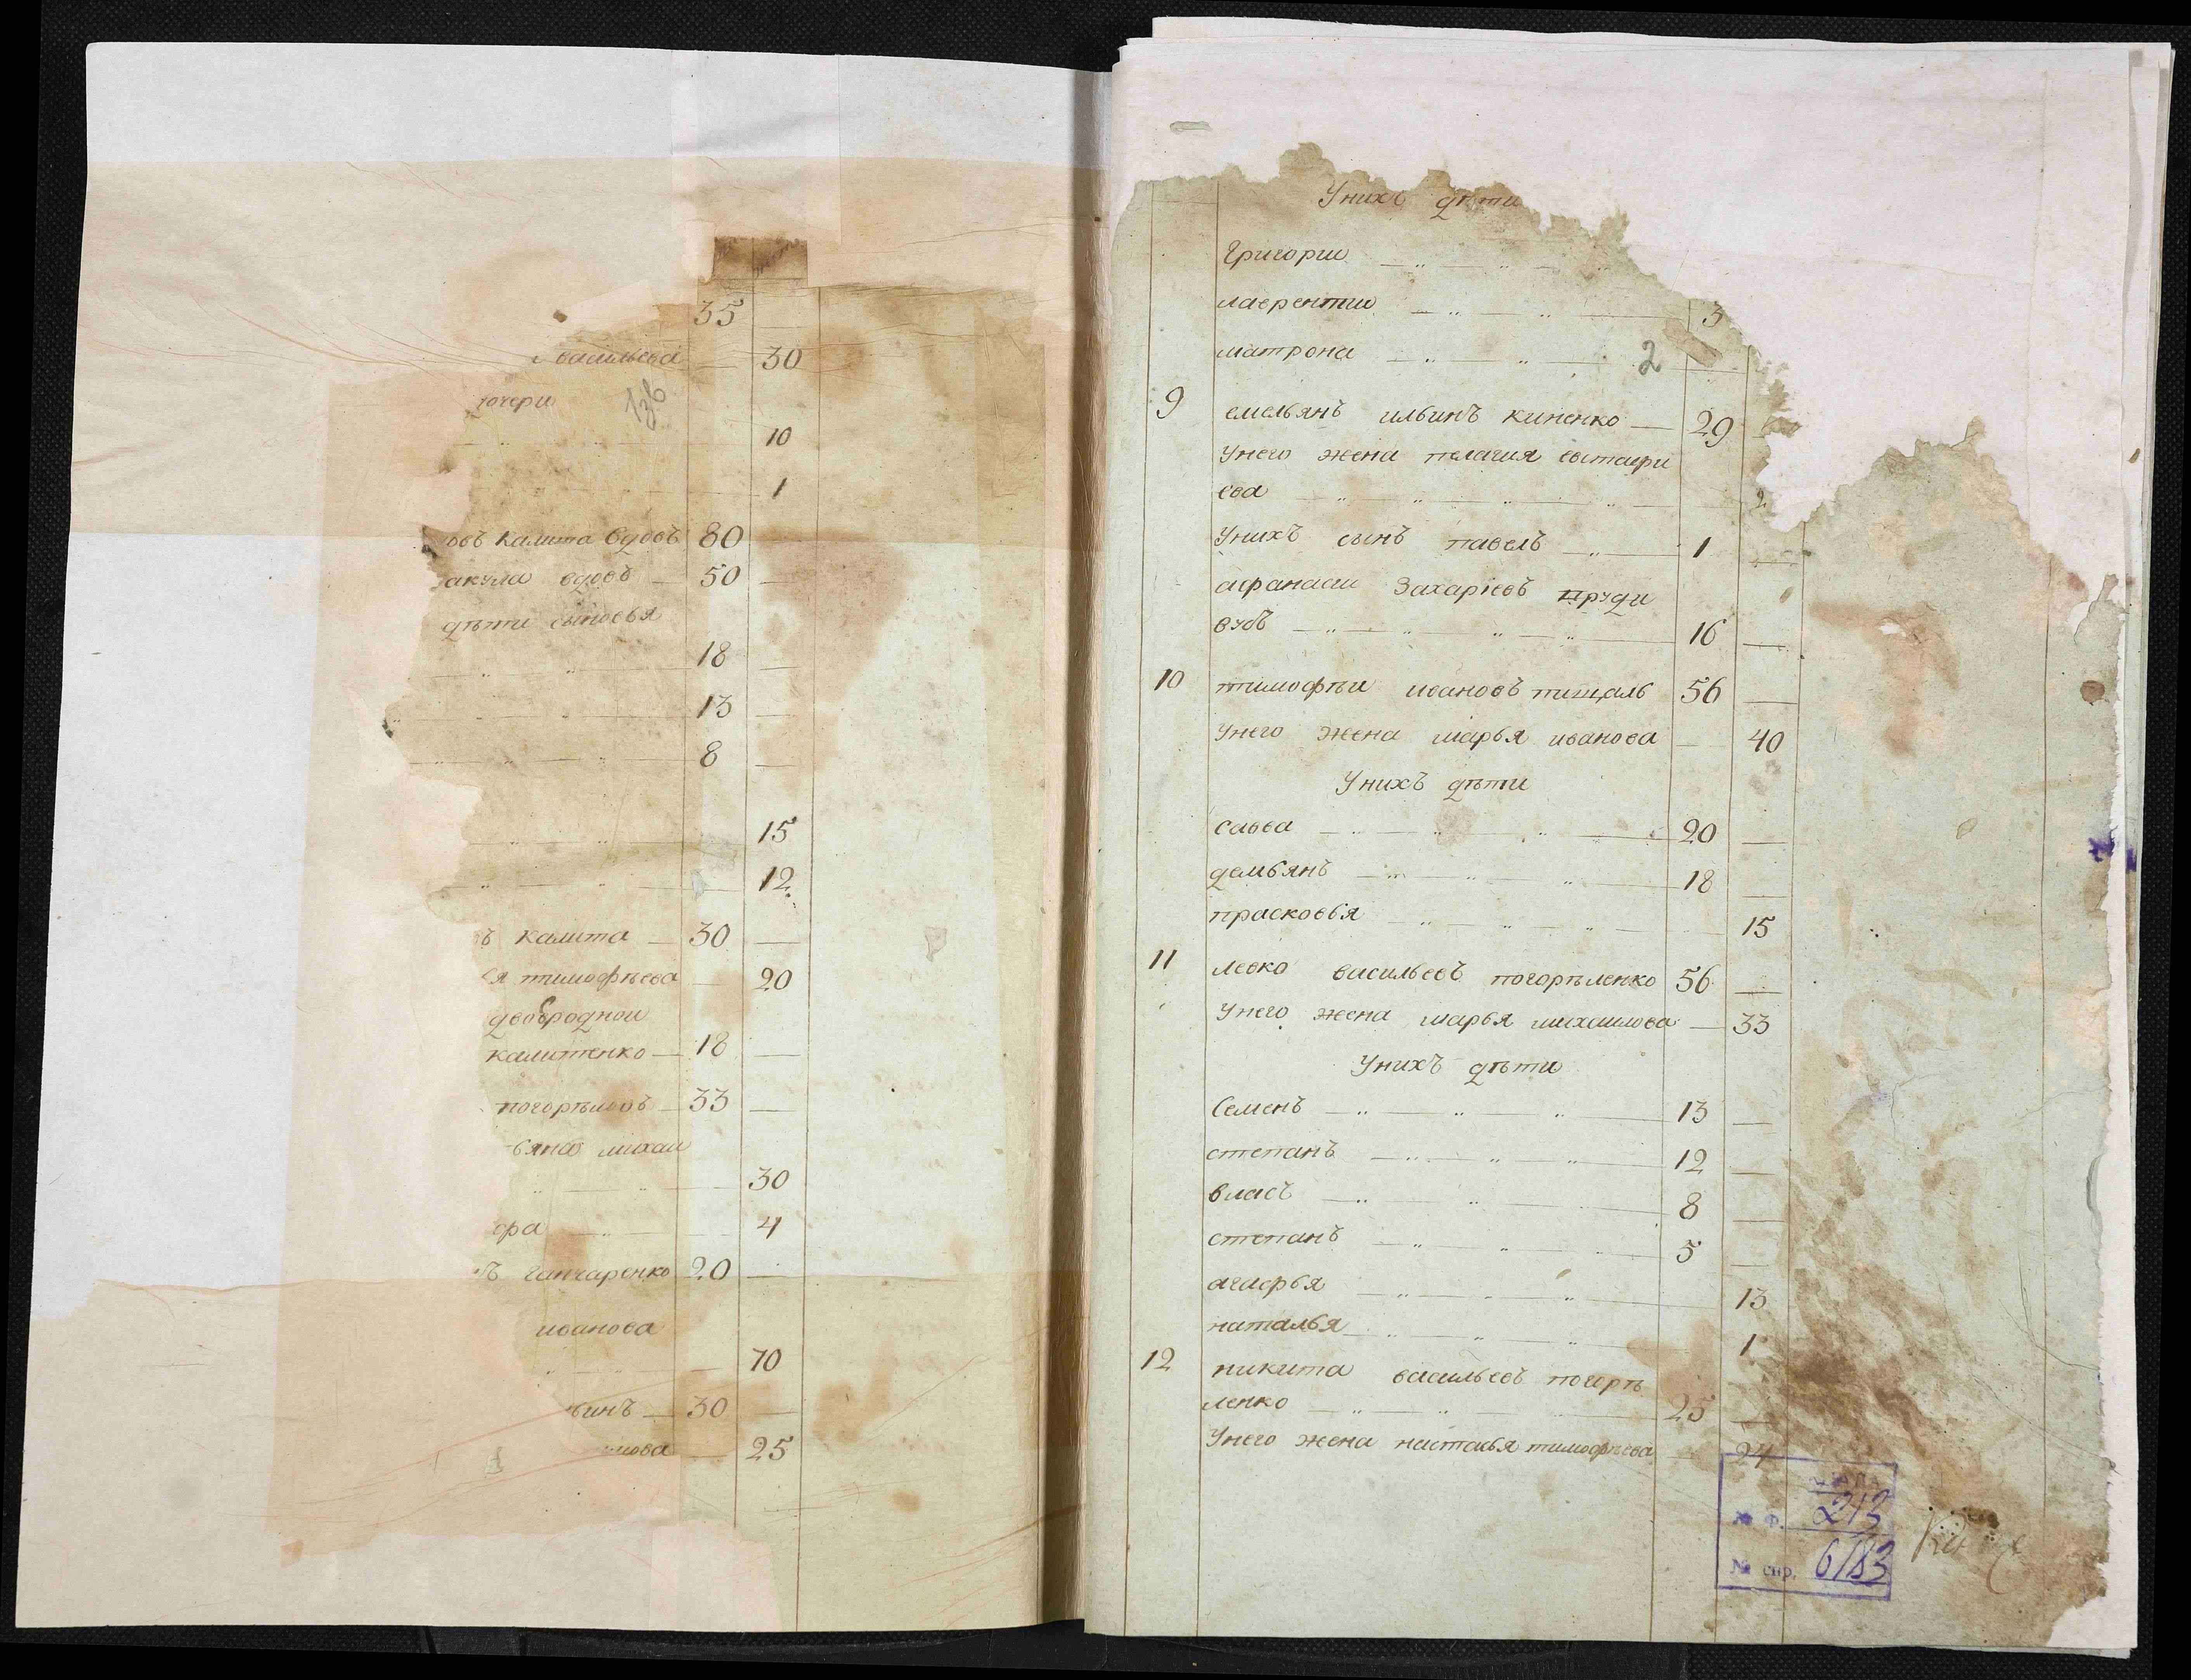 35
васильева — 30
дочери
1зв
10
1
овъ калита вдовъ 80
акула вдовъ — 50 —
дѣти сыновья
18 —
13 —
8 —
15
12
ъ калита — 30 —
я тимофѣева — 20
двоюродной
калитенко — 18 —
погорѣловъ — 33 —
ьяна михаи
30
фра — 4
ъ ганчаренко 20 —
иванова
— 70
ьинъ — 30 —
мова — 25
Унихъ дѣти
Григории
лаврентии — 3
матрона — 2
9 емельянъ ильинъ киненко — 29
Унего жена пелагия евстафи
ева — 2
Унихъ сынъ павелъ — 1 —
афанасии Захарїевъ пруди
вусъ — 16 —
10 тимофѣи ивановъ пищаль 56 —
Унего жена марья иванова — 40
Унихъ дѣти
савва — 20 —
демьянъ — 18 —
прасковья — 15
11 левко васильевъ погорѣленко 56 —
Унего жена марья михаилова — 33
Унихъ дѣти
Семенъ — 13 —
степанъ — 12 —
власъ — 8 —
степанъ — 5 —
агафья — 13
наталья — 1
12 никита васильевъ погорѣ
ленко — 25 —
Унего жена настасья тимофѣева 24
№ ф. 213
№ спр. 6/83